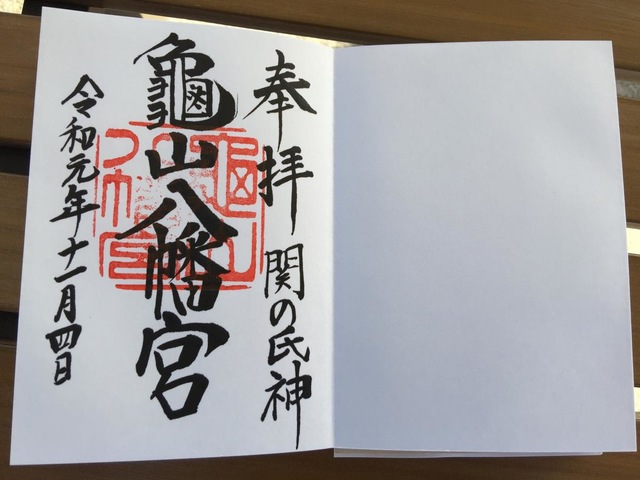 奉拝 関の氏神
龜山八幡宮
令和元年十一月四日